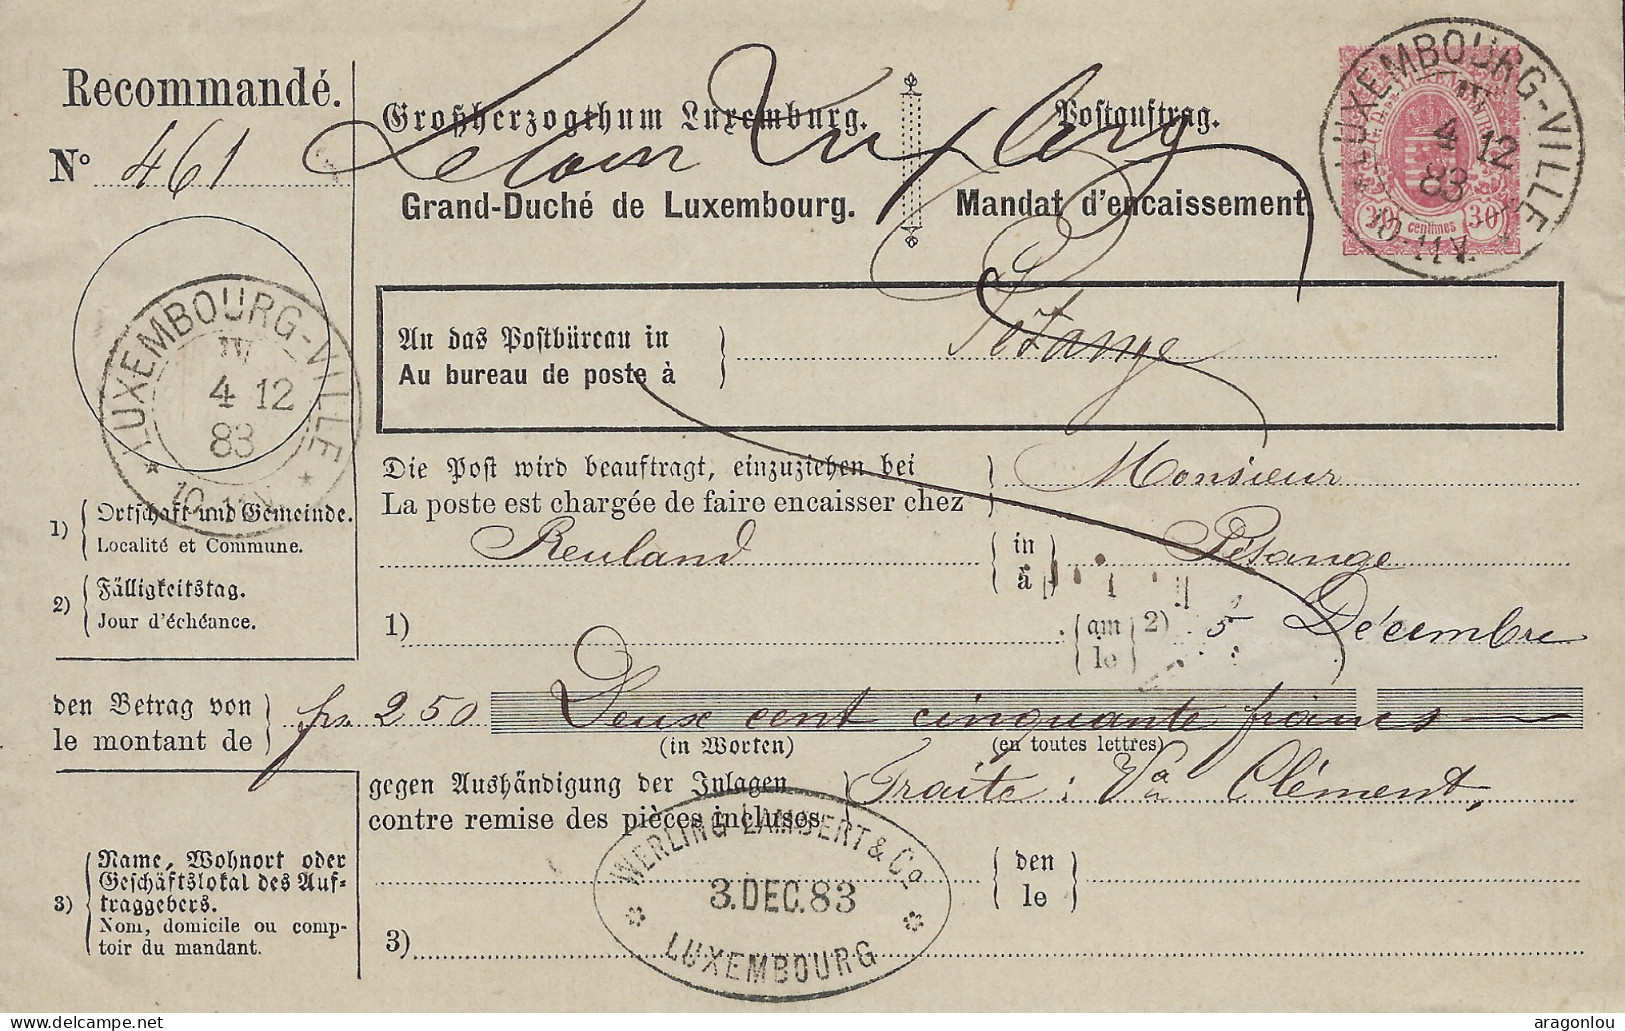 Recommandé.
Nº 461
Großherzogthum Luxemburg.
Postauftrag.
Grand-Duché de Luxembourg.
Mandat d'encaissement
LUXEMBOURG-VILLE
IV
4 12
83
10-11 V.
30 centimes 30
An das Postbüreau in
Au bureau de poste à
Pétange
LUXEMBOURG-VILLE
IV
4 12
83
10-11 V
Die Post wird beauftragt, einzuziehen bei
La poste est chargée de faire encaisser chez
Monsieur
Reuland
in
à
Pétange
1) Ortschaft und Gemeinde.
Localité et Commune.
2) Fälligkeitstag.
Jour d'échéance.
1)
am
le
2) 5 Décembre
den Betrag von
le montant de
frs 250 Deux cent cinquante francs
(in Worten) (en toutes lettres)
gegen Aushändigung der Inlagen
contre remise des pièces incluses
Traite: Va Clément,
den
le
3) Name, Wohnort oder
Geschäftslokal des Auf-
traggebers.
Nom, domicile ou comp-
toir du mandant.
3)
WERLING LAMBERT & Co
3. DEC. 83
LUXEMBOURG
aragonlou